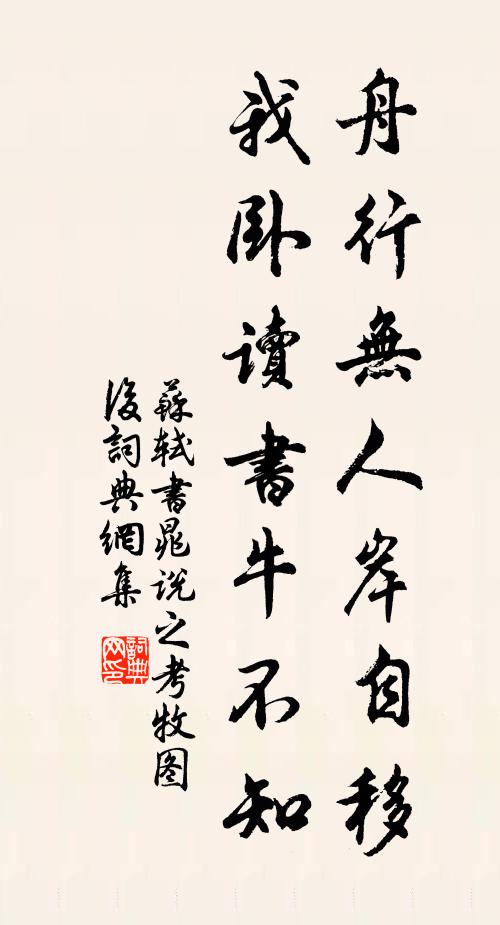 舟行無人岸自移
我卧讀書牛不知
蘇軾書晁說之考牧图
後詞典網集
詞典
网印